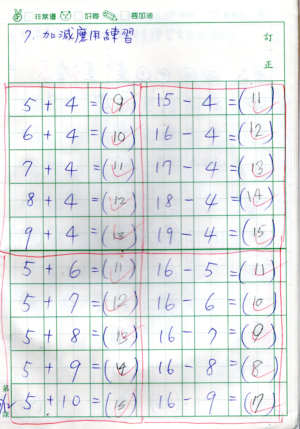 非常優 好棒 要加油
7. 加減應用練習
訂正
5 + 4 = (9) 15 - 4 = (11)
6 + 4 = (10) 16 - 4 = (12)
7 + 4 = (11) 17 - 4 = (13)
8 + 4 = (12) 18 - 4 = (14)
9 + 4 = (13) 19 - 4 = (15)
5 + 6 = (11) 16 - 5 = (11)
5 + 7 = (12) 16 - 6 = (10)
5 + 8 = (13) 16 - 7 = (9)
5 + 9 = (14) 16 - 8 = (8)
第
5 + 10 = (15) 16 - 9 = (7)